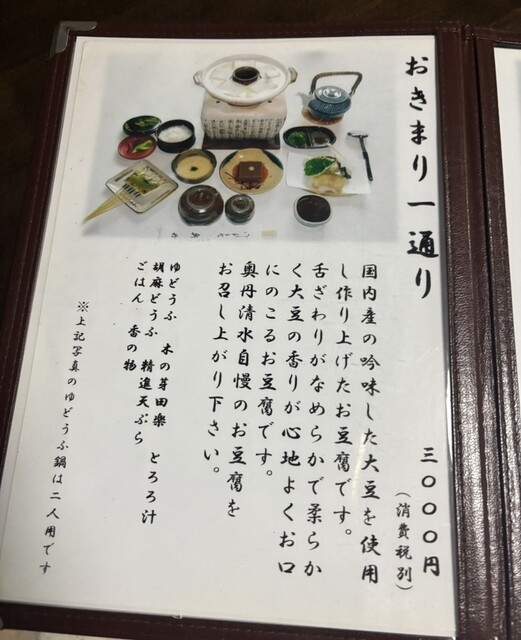 おきまり一通り
三〇〇〇円
（消費税別）
国内産の吟味した大豆を使用
し作り上げたお豆腐です。
舌ざわりがなめらかで柔らか
く大豆の香りが心地よくお口
にのこるお豆腐です。
奥丹清水自慢のお豆腐を
お召し上がり下さい。
ゆどうふ 木の芽田楽 とろろ汁
胡麻どうふ 精進天ぷら
ごはん 香の物
※上記写真のゆどうふ鍋は二人用です